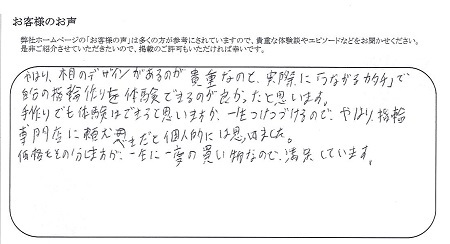 お客様のお声
弊社ホームページの「お客様の声」は多くの方が参考にされていますので、貴重な体験談やエピソードなどをお聞かせください。
是非ご紹介させていただきたいので、掲載のご許可もいただければ幸いです。
やはり、木目のデザインがあるのが貴重なのと、実際に「つながるカタチ」で
自らの指輪作りを体験できるのが良かったと思います。
手作りでも体験はできると思いますが、一生つけつづけるので、やはり指輪
専門店に頼むべきだと個人的には思いました。
価格もその分しますが、一生に一度の買い物なので、満足しています。